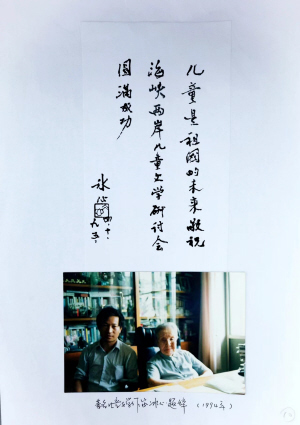 儿童是祖國的未来敬祝
海峡两岸儿童文学研讨会
圆满成功
冰心
四、十、
九三、
作家冰心题辞（1994年）